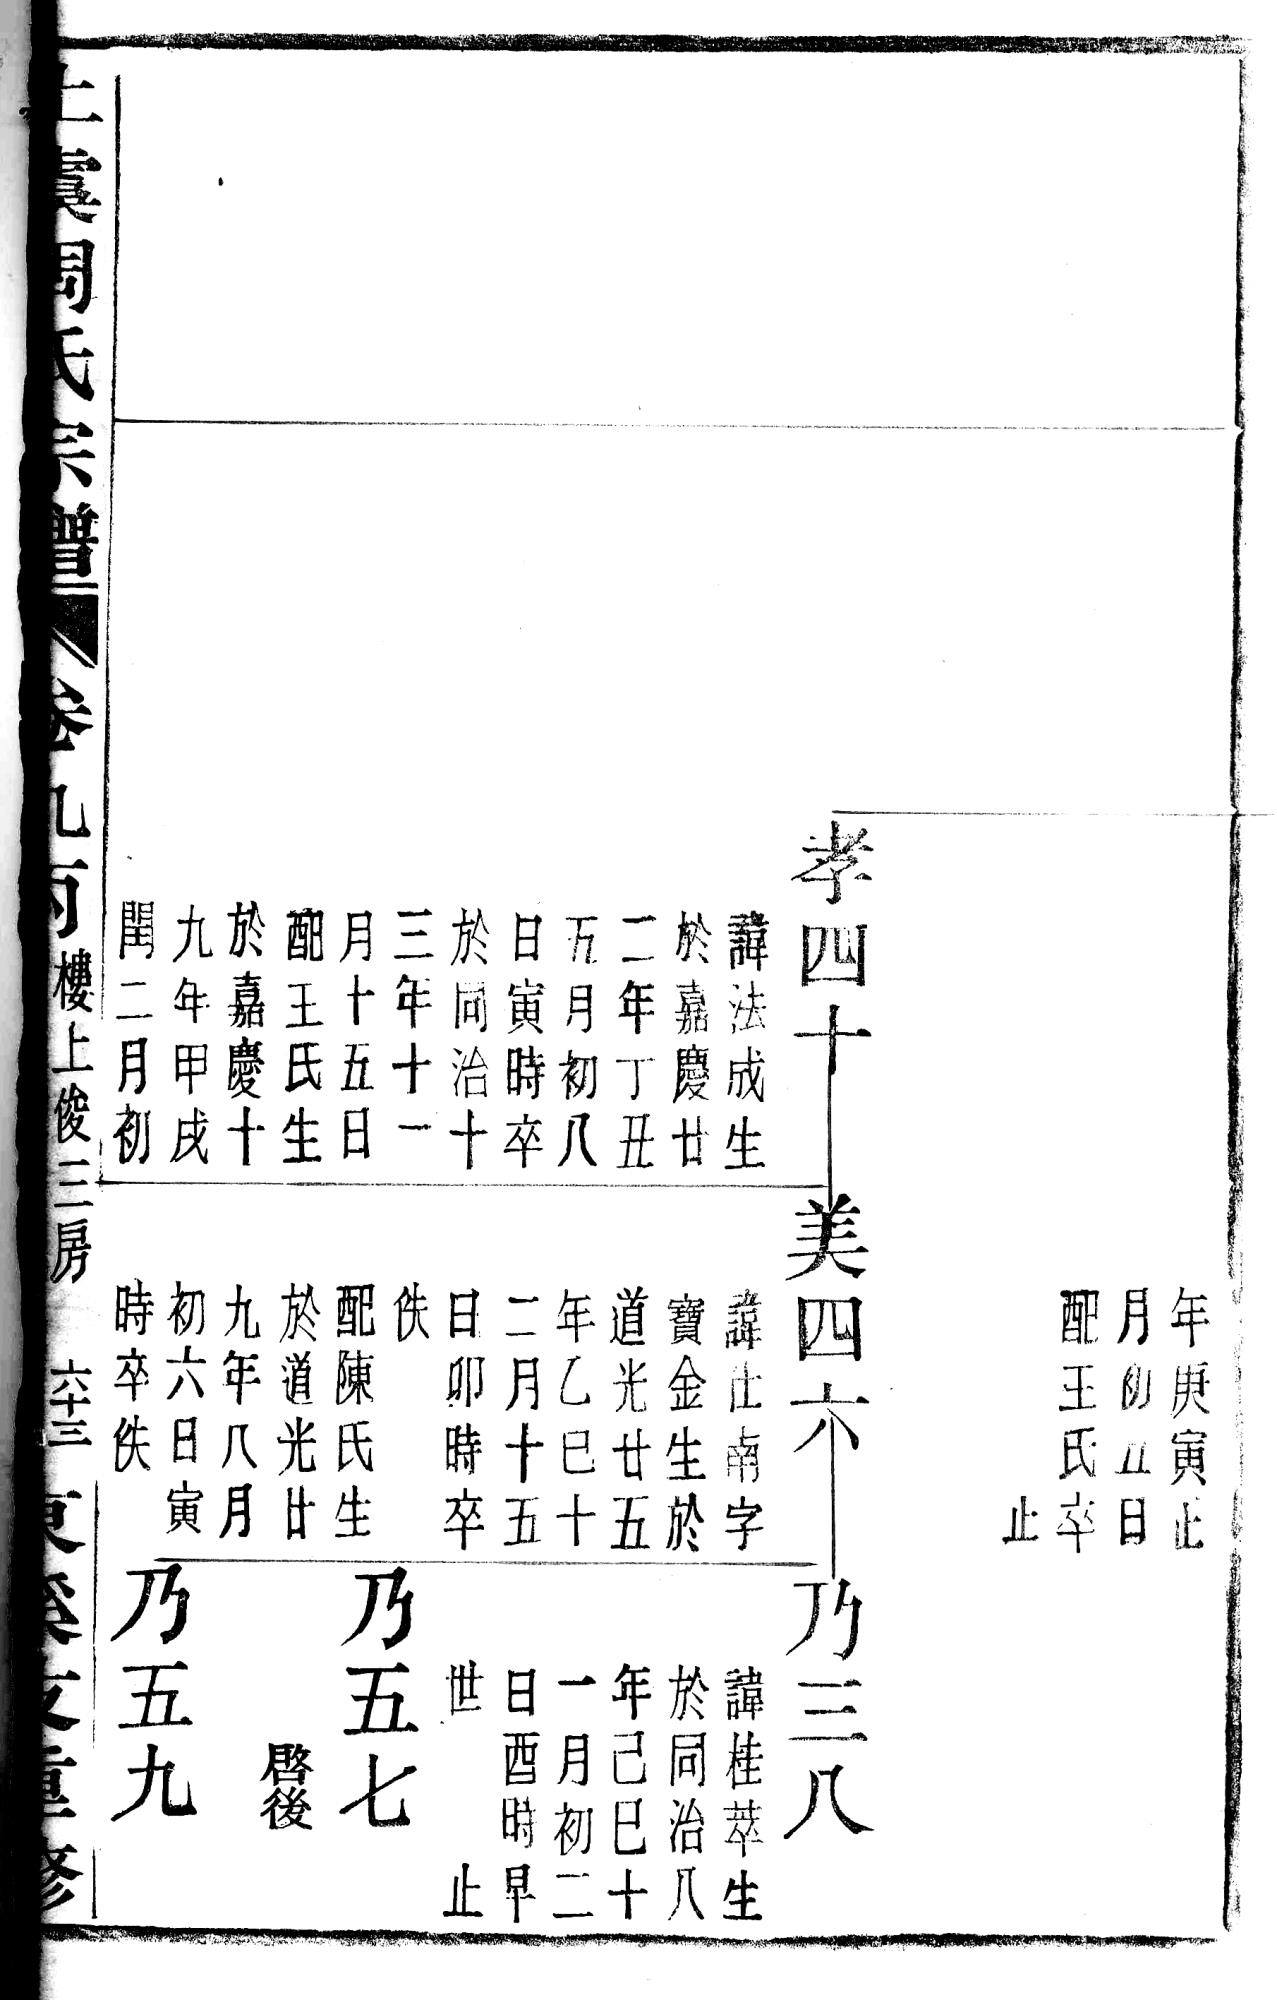 年庚寅正
月初五日
配王氏卒
止
孝四十
諱法成生
於嘉慶廿
二年丁丑
五月初八
日寅時卒
於同治十
三年十一
月十五日
配王氏生
於嘉慶十
九年甲戌
閏二月初
美四六
諱仕南字
寶金生於
道光廿五
年乙巳十
二月十五
日卯時卒
佚
配陳氏生
於道光廿
九年八月
初六日寅
時卒佚
乃三八
諱桂萃生
於同治八
年己巳十
一月初二
日酉時早
世 止
乃五七
啓後
乃五九
上虞周氏宗譜 卷九丙 樓上俊三房 六十三 東溪支重修